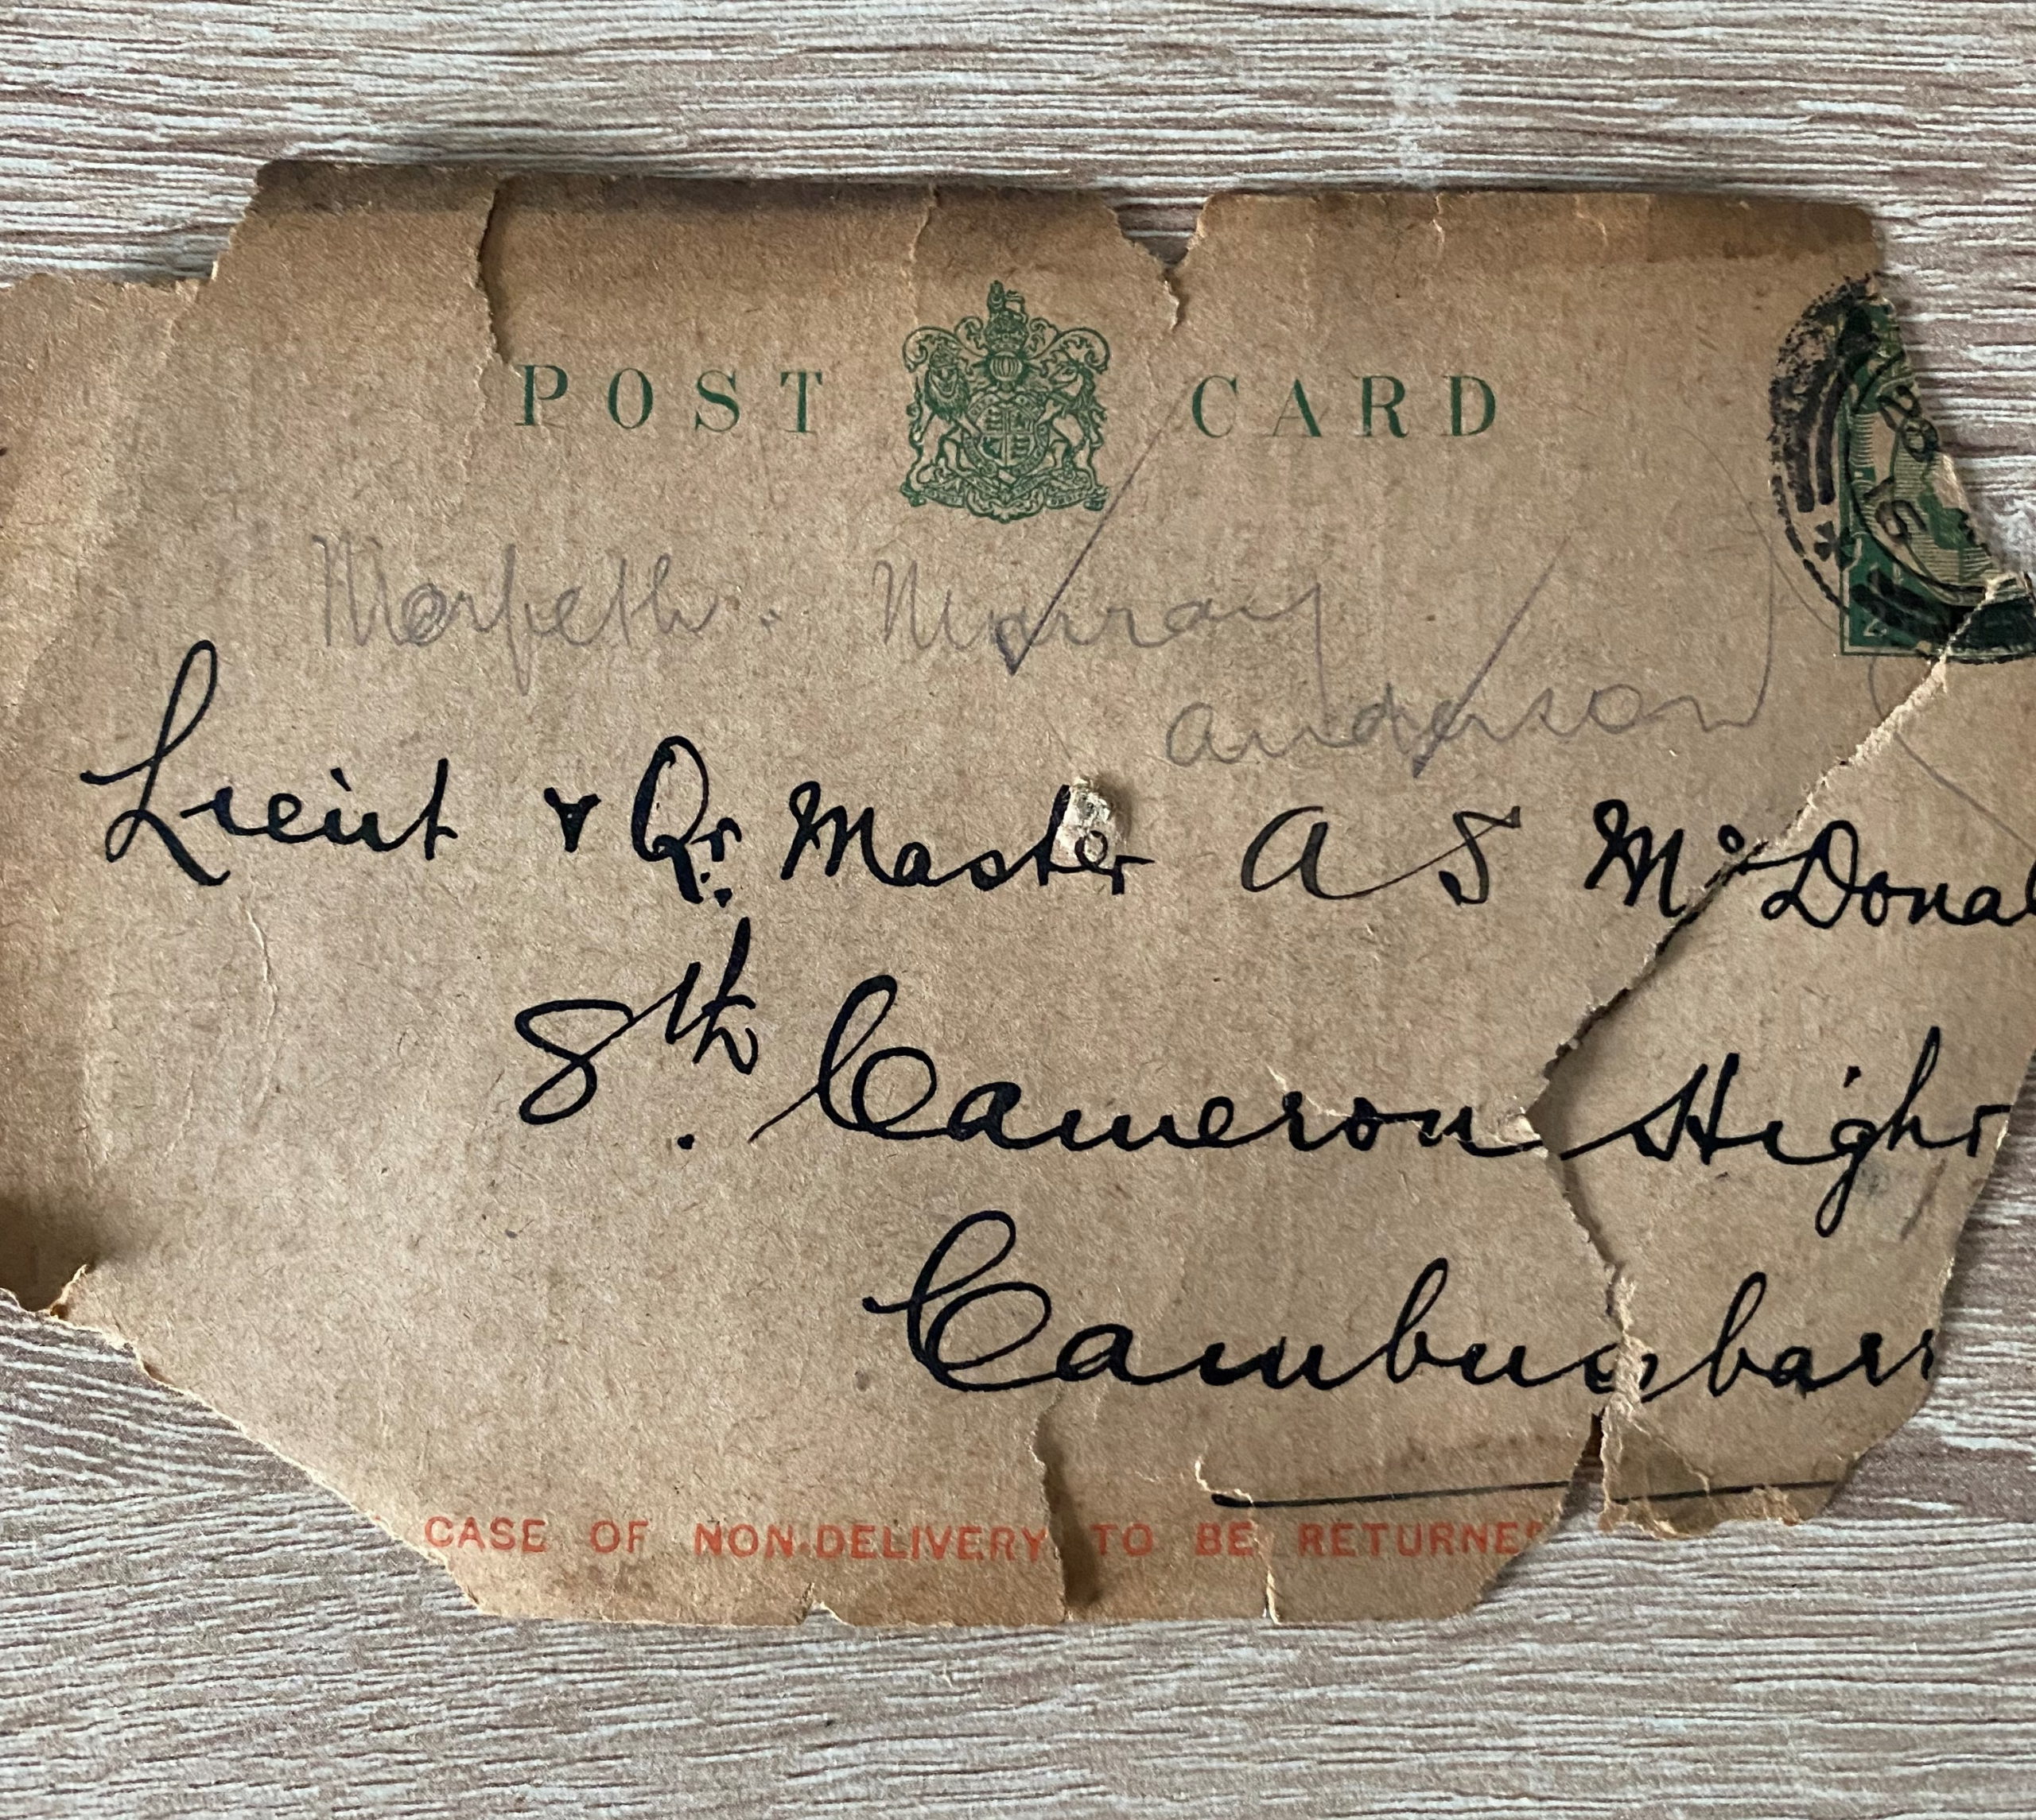 POST CARD
20
15
Morpeth. Murray
Anderson
Lieut & Qr. Master A S McDonal
8th Cameron Highr
Cambusbarr
CASE OF NON-DELIVERY TO BE RETURNE